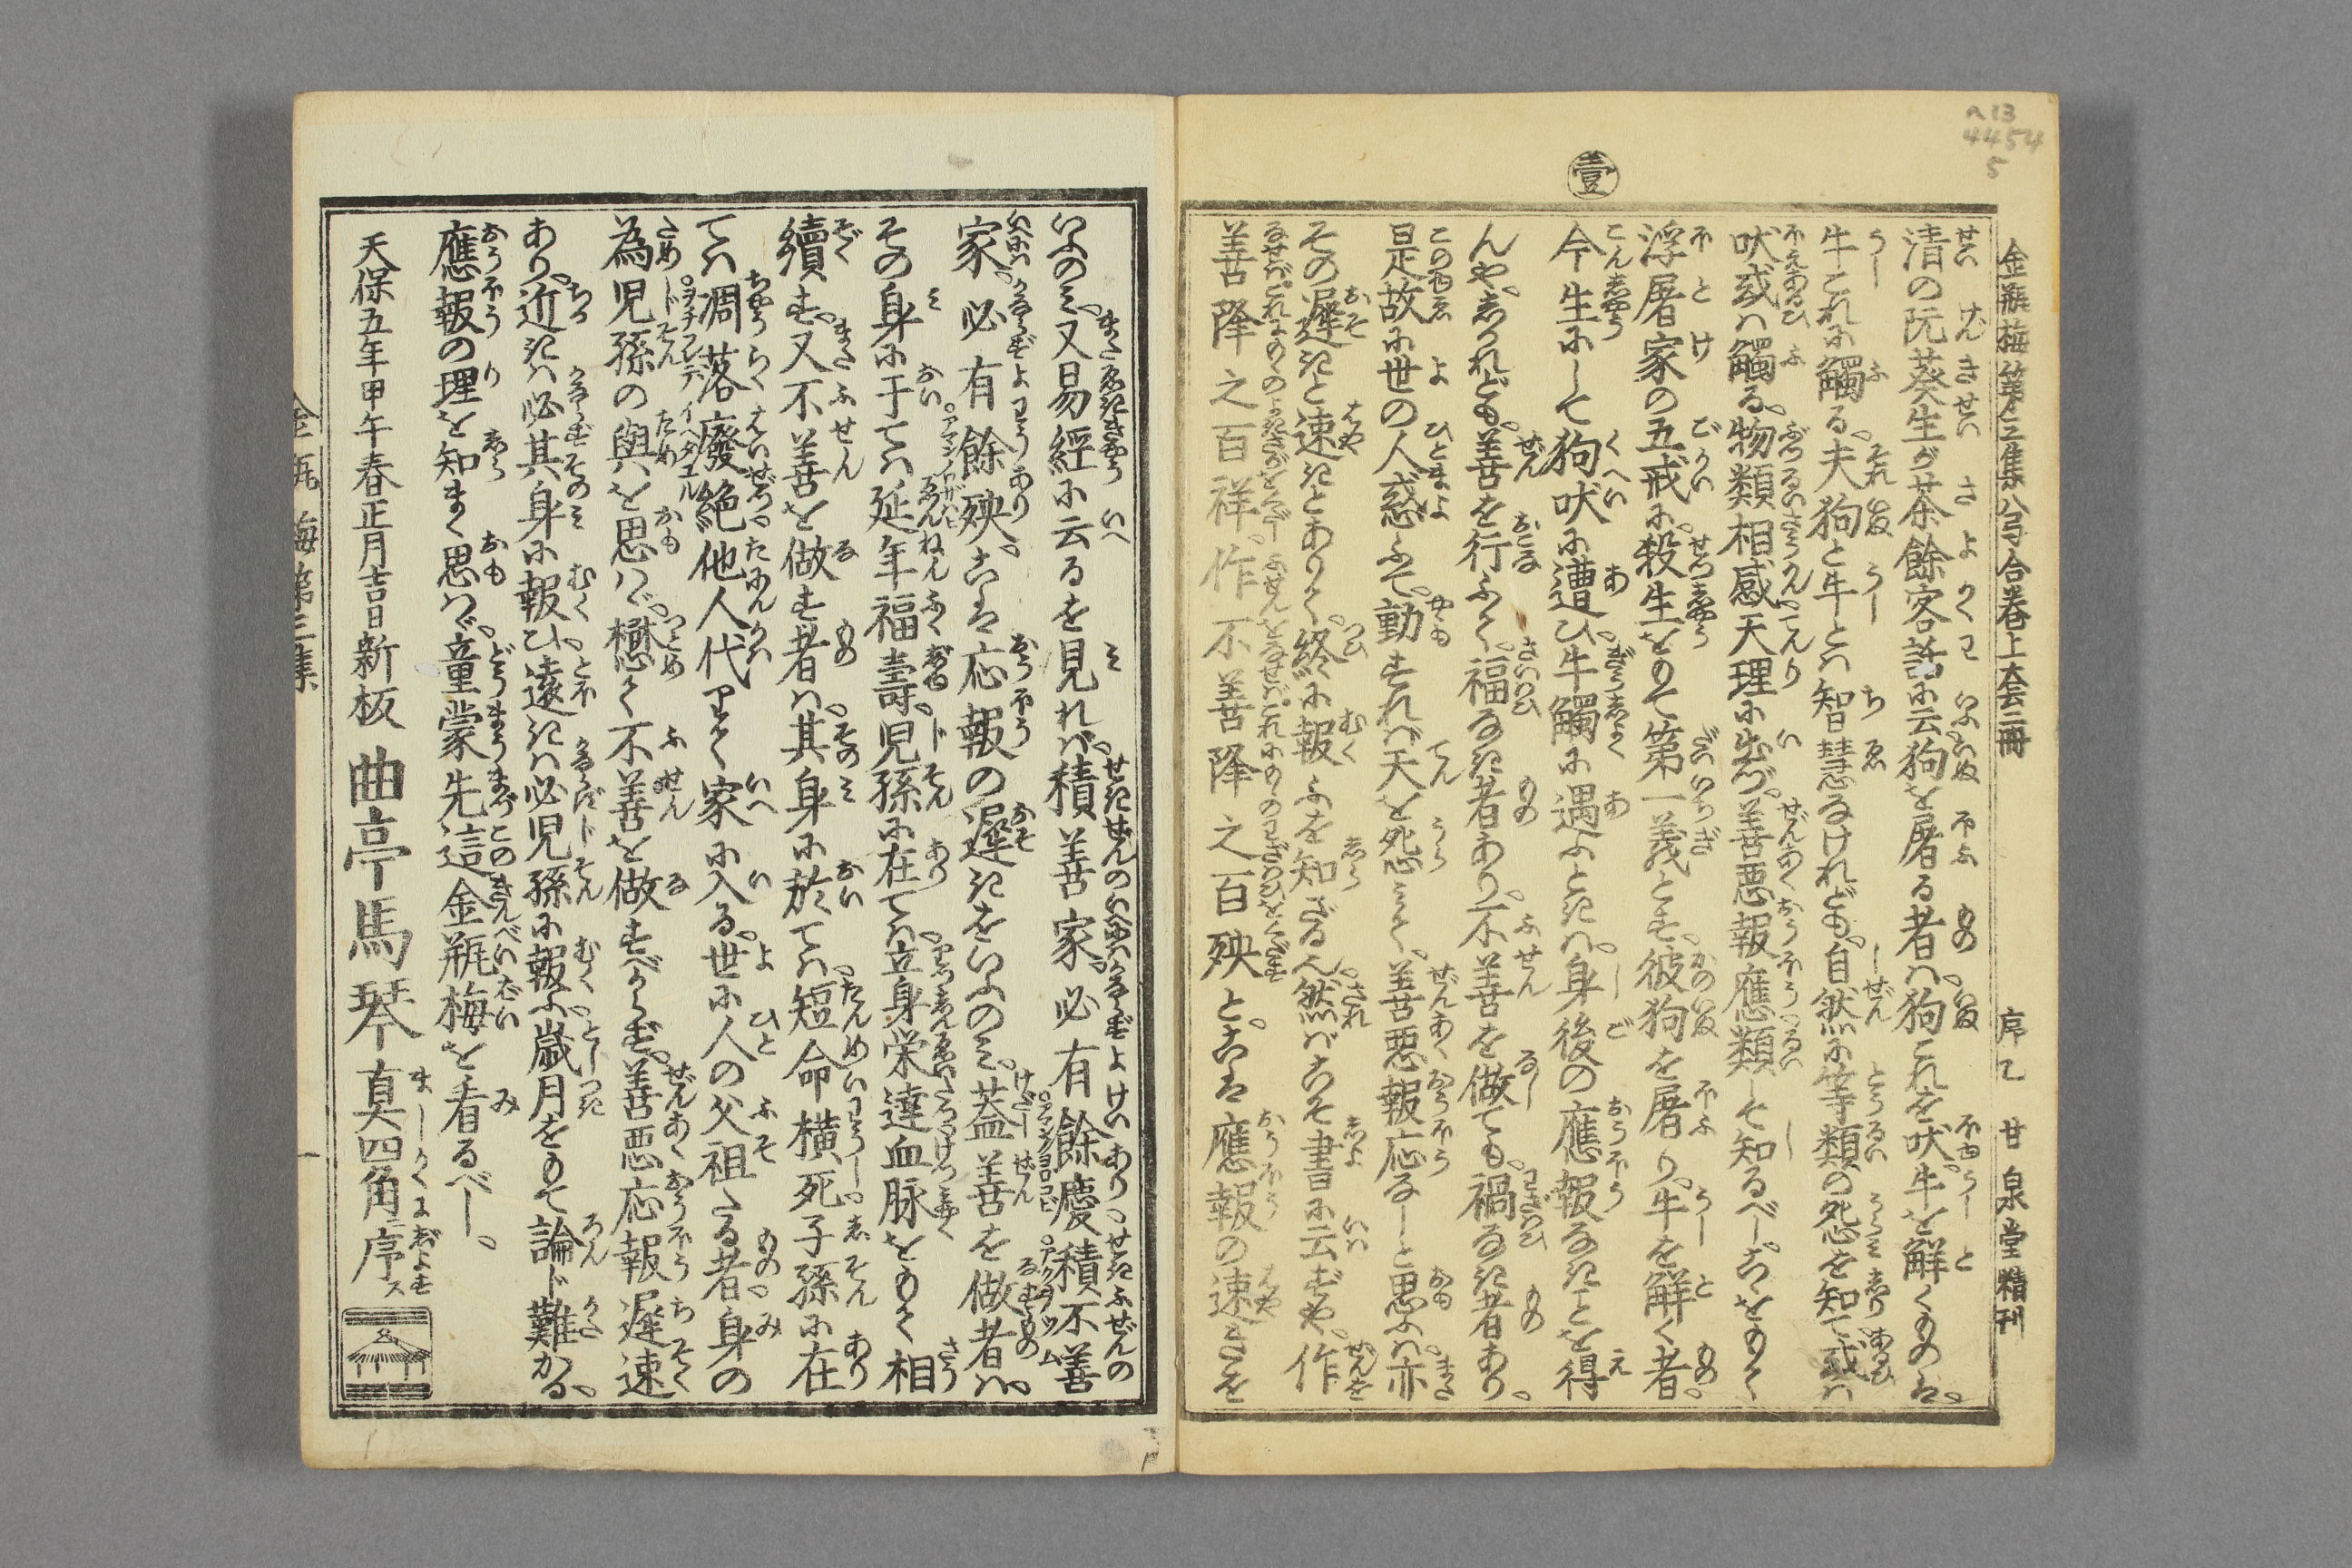 A13
4454
5
壹
金瓶梅第三集八弓合巻上套二冊 序乙 甘泉堂精刊
清の阮葵生が茶餘客話に云狗を屠る者は。狗これを吠。牛を解くものは。
牛これに觸る。夫狗と牛とは智慧なけれども。自然に等類の怨を知て。或は
吠或は觸る。物類相感天理に出づ。善悪報應類して知るべし。こゝをもて
浮屠家の五戒に。殺生をもて第一義とす。彼狗を屠り。牛を解く者。
今生にして狗吠に遭ひ。牛觸に遇ふときは。身後の應報なきことを得
んや。しかれども。善を行ふて。福なき者あり。不善を做ても。禍なき者あり。
是故に世の人惑ふて。動すれば天を怨みて。善悪報応なしと思ふは亦
その遲きと速きとありて。終に報ふを知ざる人。然ばこそ書に云ずや。作
善降之百祥。作不善降之百殃と。こは應報の速きを
いふのみ。又易經に云るを見れば。積善家。必有餘慶。積不善
家。必有餘殃。こは応報の遲きをいふのみ。蓋善を做者は。
その身に于ては延年福壽。児孫に在ては立身栄達血脉をもて相
續す。又不善を做す者は。其身に於ては短命横死子孫に在
ては凋落廢絶他人代りて家に入る。世に人の父祖たる者。身の
為児孫の與を思はゞ。懋て不善を做すべからず。善悪応報遲速
あり。近きは必其身に報ひ。遠きは必児孫に報ふ。歳月をもて論じ難かる。
應報の理を知まく思はゞ。童蒙先這金瓶梅を看るべし。
天保五年甲午春正月吉日新板 曲亭馬琴真四角ニ序ス
金瓶梅第三集 一